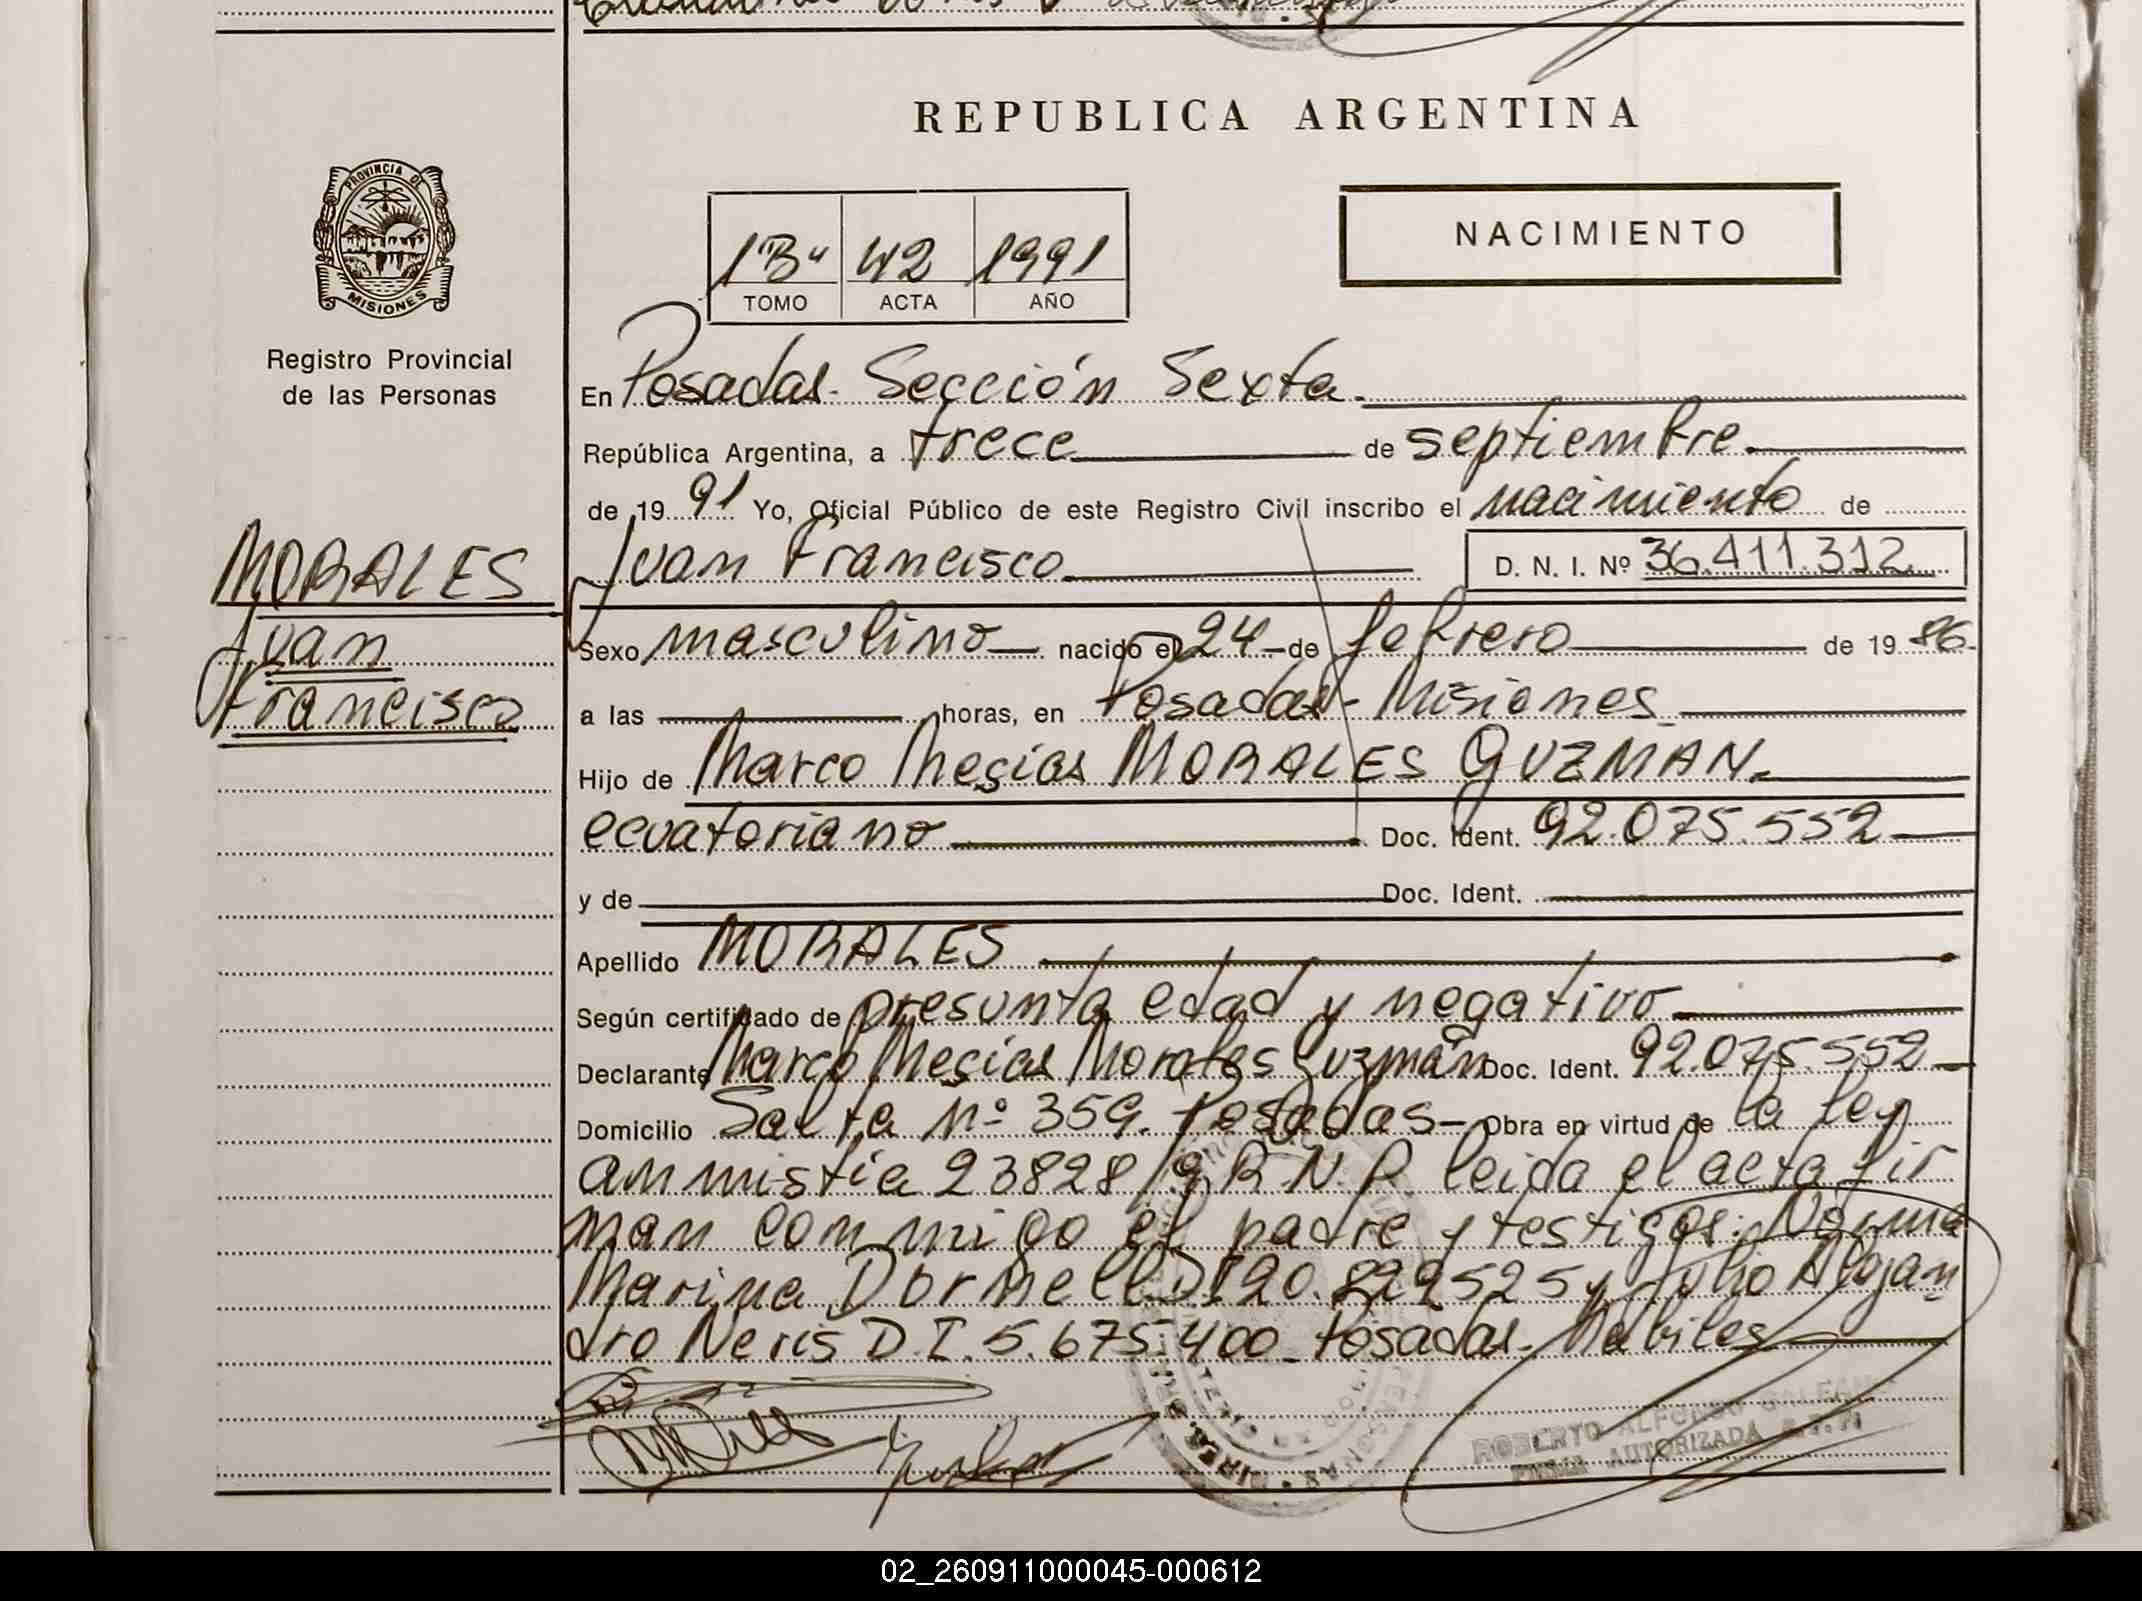 REPUBLICA ARGENTINA
PROVINCIA DE
MISIONES
Registro Provincial
de las Personas
1"B" 42 1991
TOMO ACTA AÑO
NACIMIENTO
En Posadas. Sección Sexta.
República Argentina, a trece de septiembre
de 1991 Yo, Oficial Público de este Registro Civil inscribo el nacimiento de
Juan Francisco D. N. I. Nº 36.411.312
MORALES
Juan
Francisco
Sexo masculino nacido el 24 de febrero de 1986
a las horas, en Posadas - Misiones
Hijo de Marco Mesías MORALES GUZMAN.
ecuatoriano Doc. Ident. 92.075.552
y de Doc. Ident.
Apellido MORALES
Según certificado de presunta edad y negativo
Declarante Marco Mesías Morales Guzmán Doc. Ident. 92.075.552
Domicilio Salta Nº 359. Posadas - Obra en virtud de la ley
ammistia 23828/9.R.N.P. leida el acta fir
man conmigo el padre y testigos: Norma
Marina DI 20.829525 y Julio Alejan
dro Neris D.I. 5.675.400 Posadas. Habiles
ROBERTO ALFONSO GALEANO
FIRMA AUTORIZADA
02_260911000045-000612